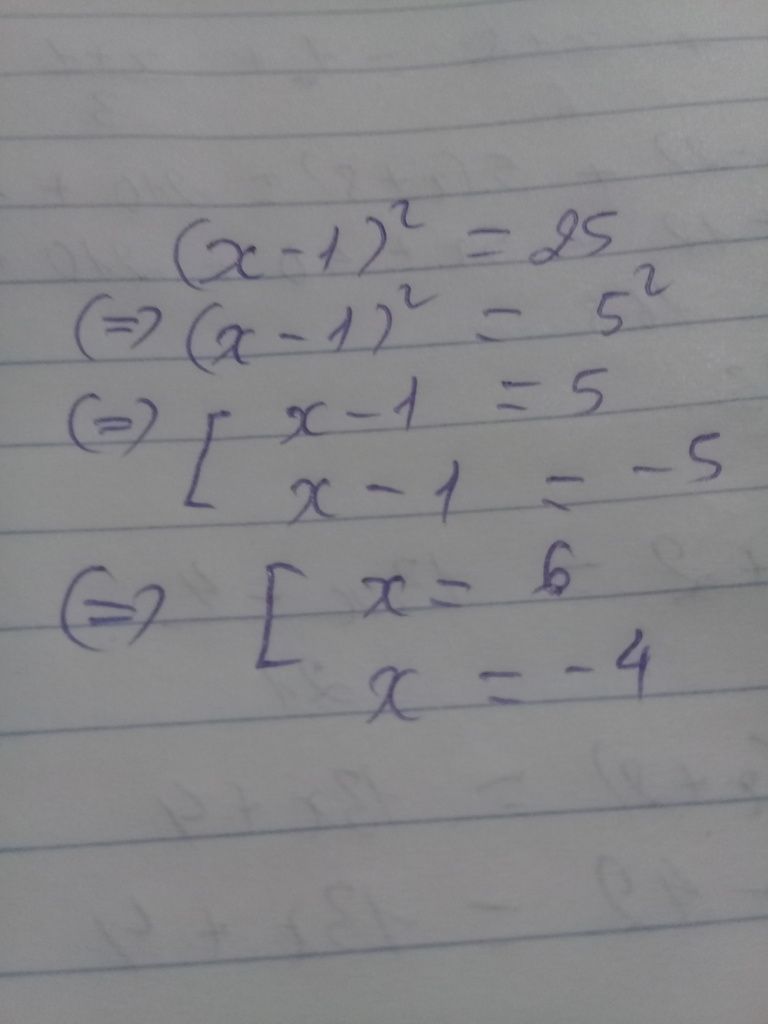 (x-1)² = 25
(=) (x-1)² = 5²
(=) [ x-1 = 5
x-1 = -5
(=) [ x = 6
x = -4